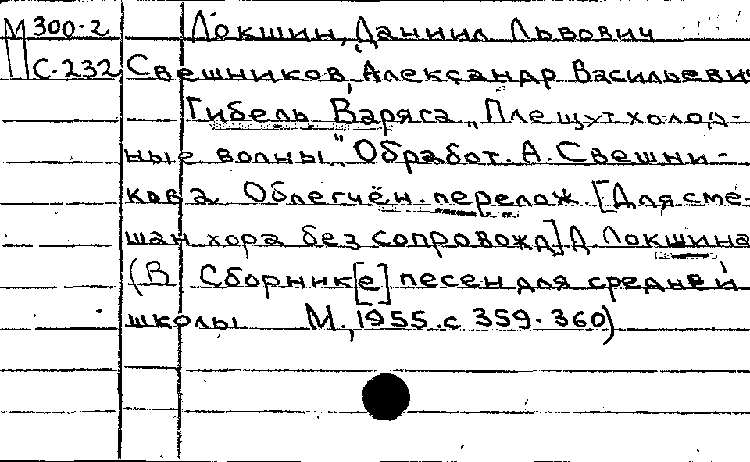 М 300-2 Локшин, Даниил Львович
П С-232 Свешников, Александр Васильевич
Гибель Варяга „Плещут холод-
ные волны" Обработ. А. Свешни-
кова. Облегчён. перелож. [Для сме-
шан хора без сопровожд] Д. Локшина
(В Сборник[е] песен для средней
школы М., 1955. с 359-360)